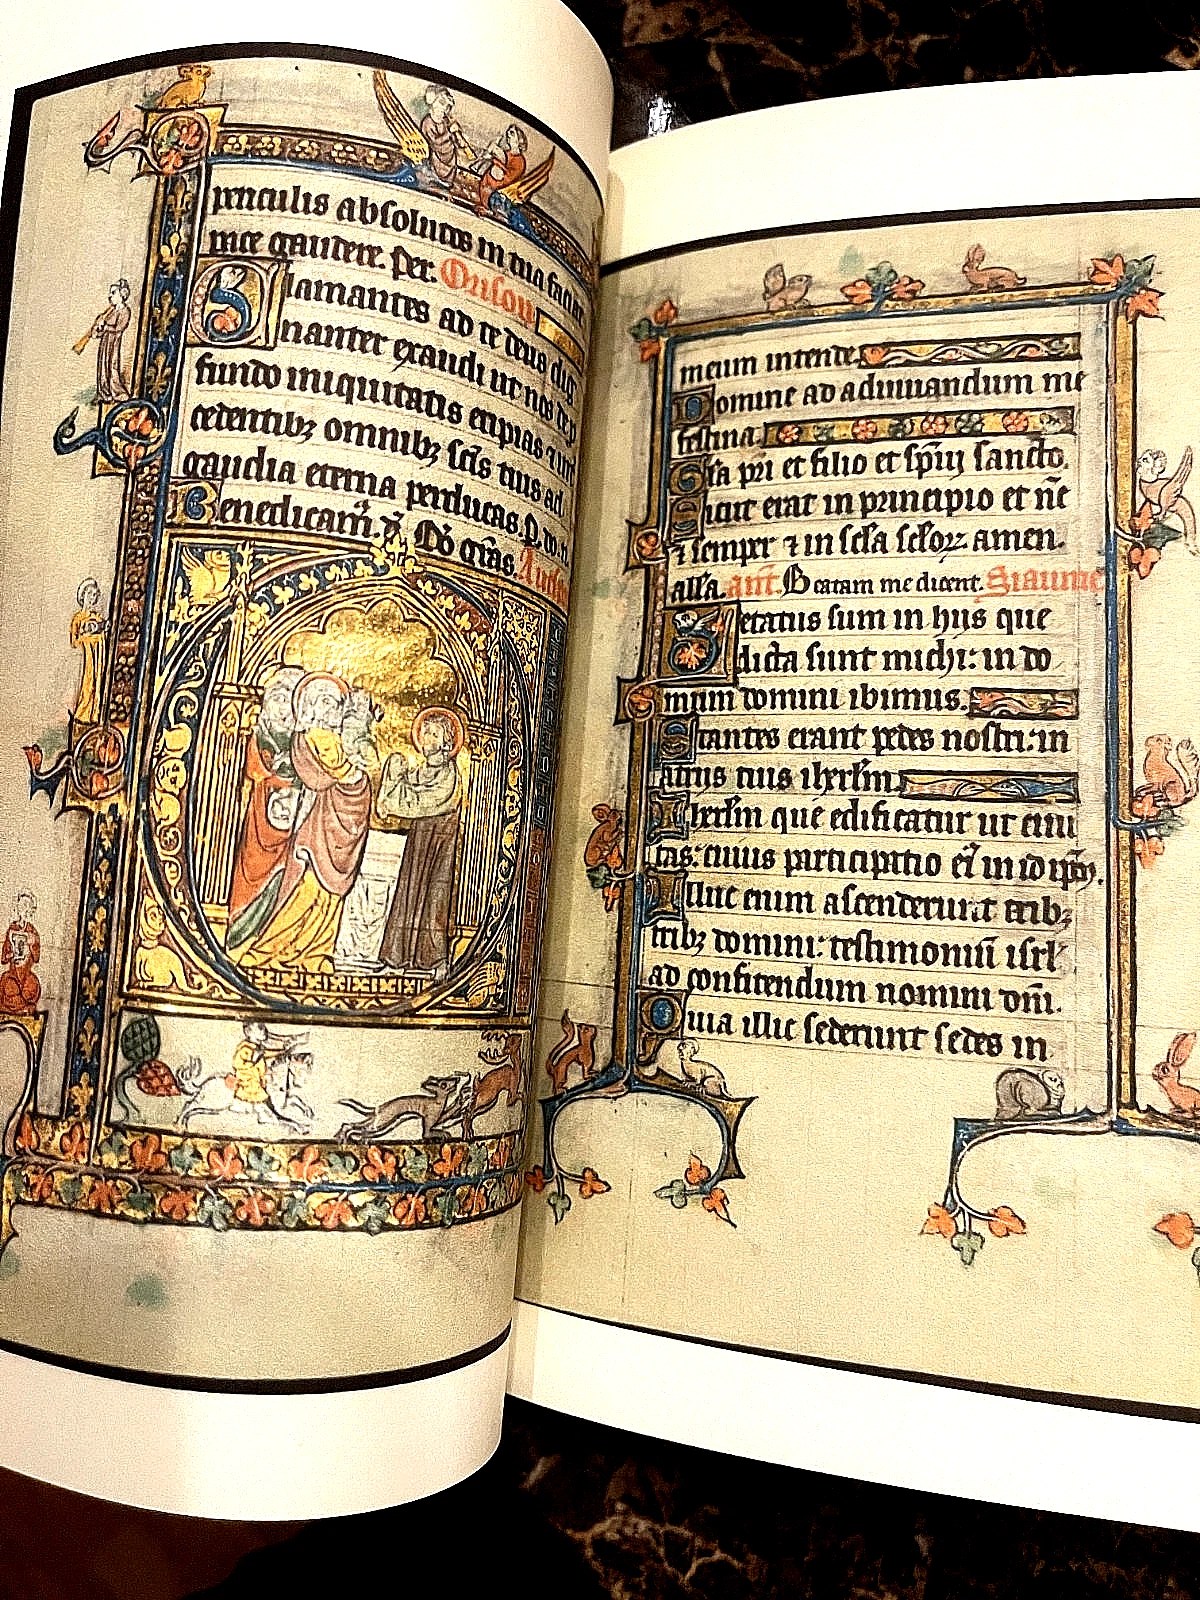 periculis absolutos in tua
gaudere. Per. Orison
Clamantes ad te deus dig
nanter exaudi ut nos de p
fundo iniquitatis eripias ⁊
cedentibꝫ omnibꝫ scīs tuis ad
gaudia eterna perducas. P. do. n.
Benedicam
meum intende.
Domine ad adiuuandum me
festina.
Gl̄a pr̄i et filio et sp̄ui sancto.
Sicut erat in principio et nc̄
⁊ semper ⁊ in sc̄la sc̄loꝝ amen.
all̄a. ant̄. Beatam me dicent. Siaume
Letatus sum in hijs que
dicta sunt michi: in do
mum domini ibimus.
Stantes erant pedes nostri: in
atrijs tuis iherl̄m.
Iherl̄m que edificatur ut ciui
tas: cuius participatio eī in id ip̄m.
Illuc enim ascenderunt tribꝫ
tribꝫ domini: testimoniū isrl̄
ad confitendum nomini dn̄i.
Quia illic sederunt sedes in